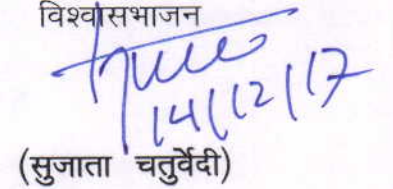 विश्वासभाजन
14/12/17
(सुजाता चतुर्वेदी)